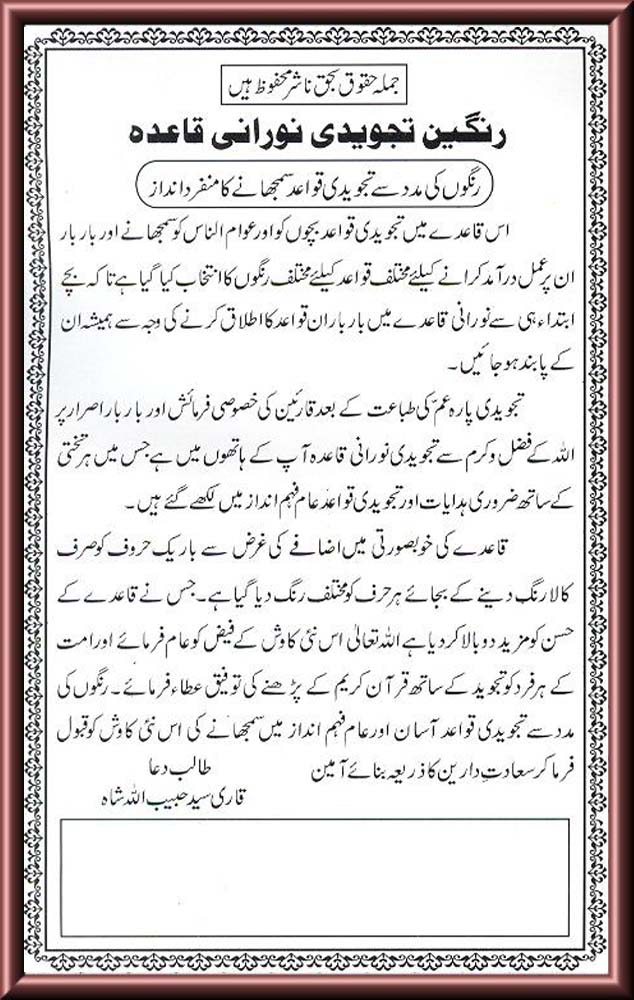 جملہ حقوق بحق ناشر محفوظ ہیں
رنگین تجویدی نورانی قاعدہ
رنگوں کی مدد سے تجویدی قواعد سمجھانے کا منفرد انداز
اس قاعدے میں تجویدی قواعد بچوں کو اور عوام الناس کو سمجھانے اور بار بار
ان پر عمل درآمد کرانے کیلئے مختلف قواعد کیلئے مختلف رنگوں کا انتخاب کیا گیا ہے تا کہ بچے
ابتداء ہی سے نورانی قاعدے میں بار بار ان قواعد کا اطلاق کرنے کی وجہ سے ہمیشہ ان
کے پابند ہو جائیں۔
تجویدی پارہ عمّ کی طباعت کے بعد قارئین کی خصوصی فرمائش اور بار بار اصرار پر
اللہ کے فضل و کرم سے تجویدی نورانی قاعدہ آپ کے ہاتھوں میں ہے جس میں ہر تختی
کے ساتھ ضروری ہدایات اور تجویدی قواعد عام فہم انداز میں لکھے گئے ہیں۔
قاعدے کی خوبصورتی میں اضافے کی غرض سے باریک حروف کو صرف
کالا رنگ دینے کے بجائے ہر حرف کو مختلف رنگ دیا گیا ہے۔ جس نے قاعدے کے
حسن کو مزید دوبالا کر دیا ہے اللہ تعالیٰ اس نئی کاوش کے فیض کو عام فرمائے اور امت
کے ہر فرد کو تجوید کے ساتھ قرآن کریم کے پڑھنے کی توفیق عطاء فرمائے۔ رنگوں کی
مدد سے تجویدی قواعد آسان اور عام فہم انداز میں سمجھانے کی اس نئی کاوش کو قبول
فرما کر سعادتِ دارین کا ذریعہ بنائے آمین
طالب دعا
قاری سید حبیب اللہ شاہ